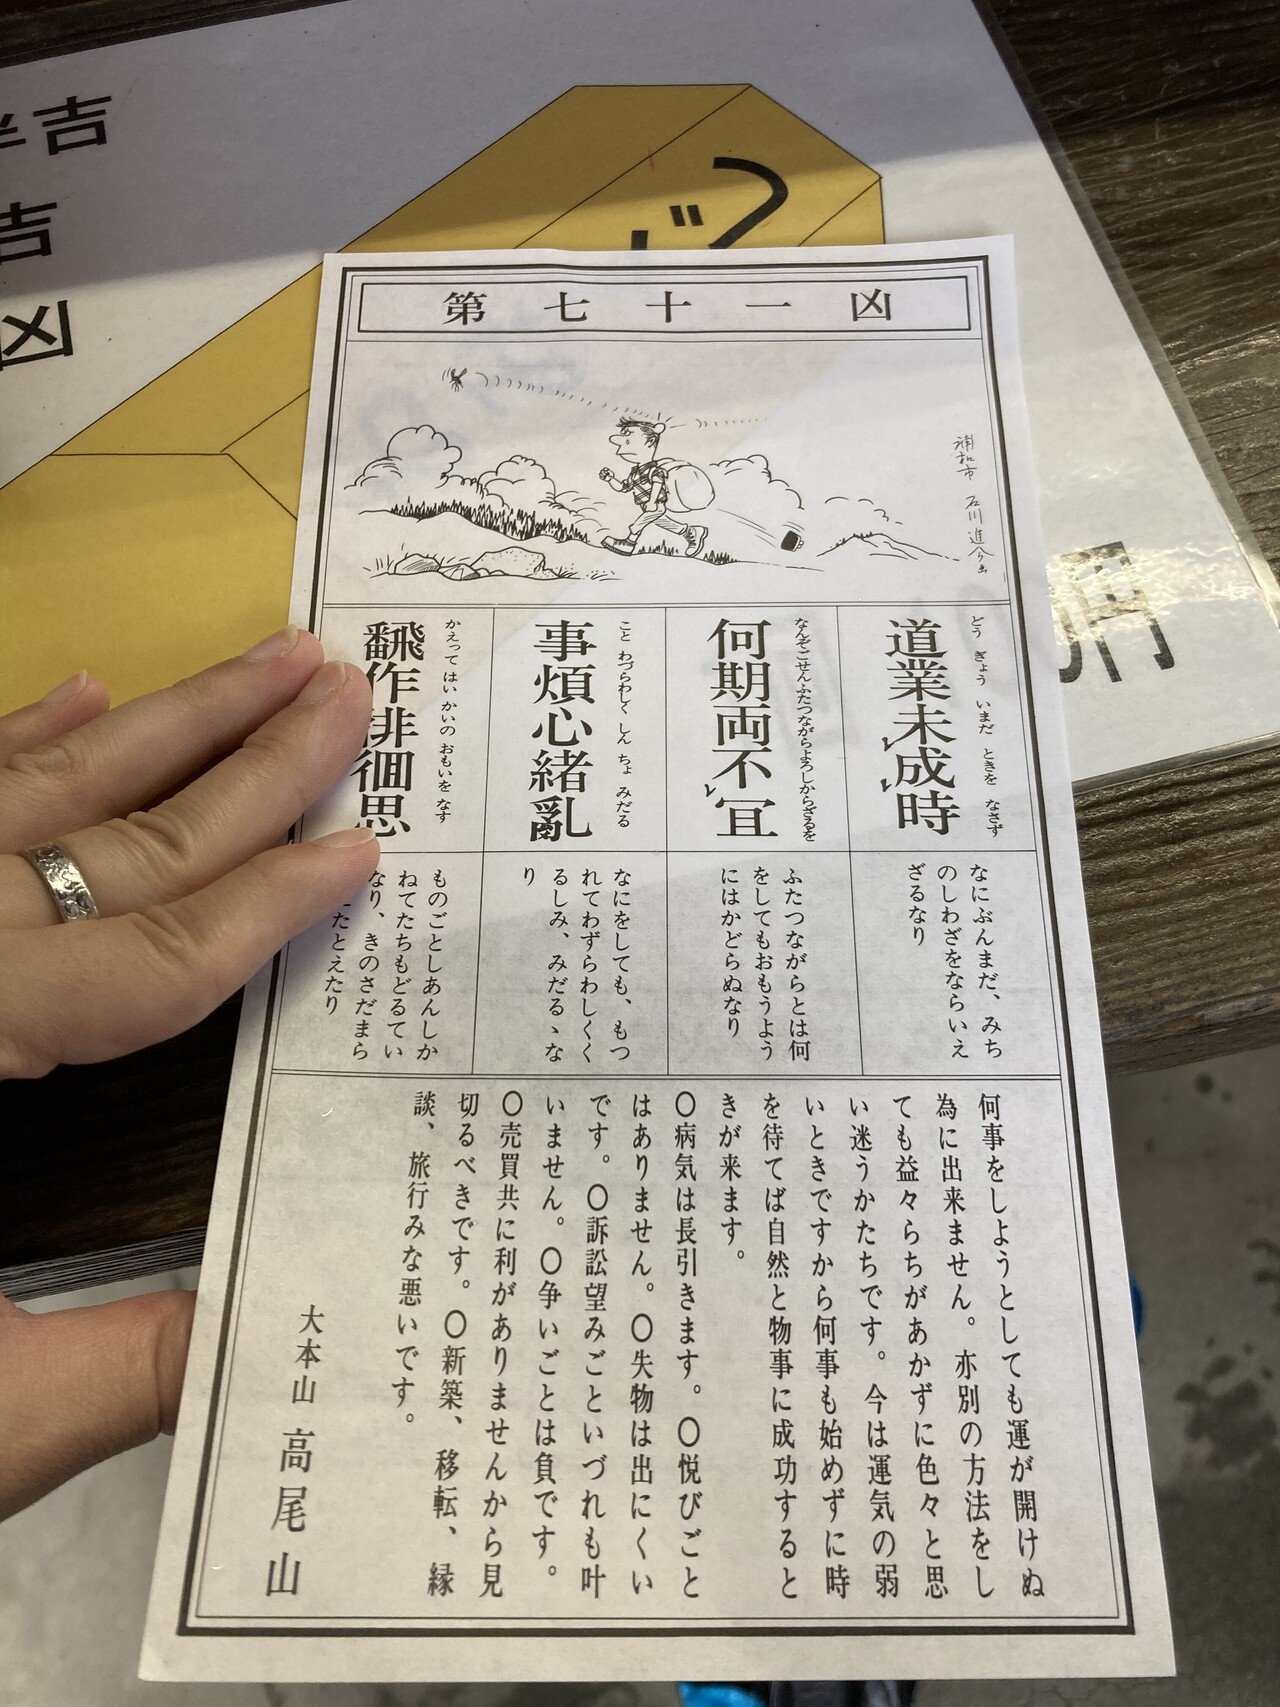 吉
吉
凶
じ
円
第七十一凶
浦和市 石川進介画
どうぎょう いまだ ときを なさず
道業未成時
なにぶんまだ、みち
のしわざをならいえ
ざるなり
なんぞごせんふたつながらよろしからざるを
何期両不冝
ふたつながらとは何
をしてもおもうよう
にはかどらぬなり
こと わづらわしく しん ちょ みだる
事煩心緒亂
なにをしても、もつ
れてわずらわしくく
るしみ、みだるゝな
り
かえって はい かいの おもいを なす
翻作徘徊思
ものごとしあんしか
ねてたちもどるてい
なり、きのさだまら
たとえたり
何事をしようとしても運が開けぬ
為に出来ません。亦別の方法をし
ても益々らちがあかずに色々と思
い迷うかたちです。今は運気の弱
いときですから何事も始めずに時
を待てば自然と物事に成功すると
きが来ます。
〇病気は長引きます。〇悦びごと
はありません。〇失物は出にくい
です。〇訴訟望みごといづれも叶
いません。〇争いごとは負です。
〇売買共に利がありませんから見
切るべきです。〇新築、移転、縁
談、旅行みな悪いです。
大本山 高尾山